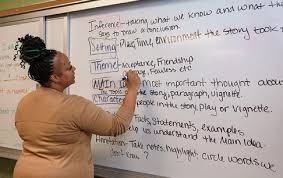 Inference:- taking what we know and what th
Says to draw a conclusion.
Setting- Place, Time, environment the story took
Theme:- acceptance, Friendship
, Flawless etc
Main most important thought about
the story, paragraph, vignette.
Character people in the story, play or vignette.
Facts, Statements, examples
help us understand the Main Idea.
Annotation- Take notes, highlight, circle words we
don't know?